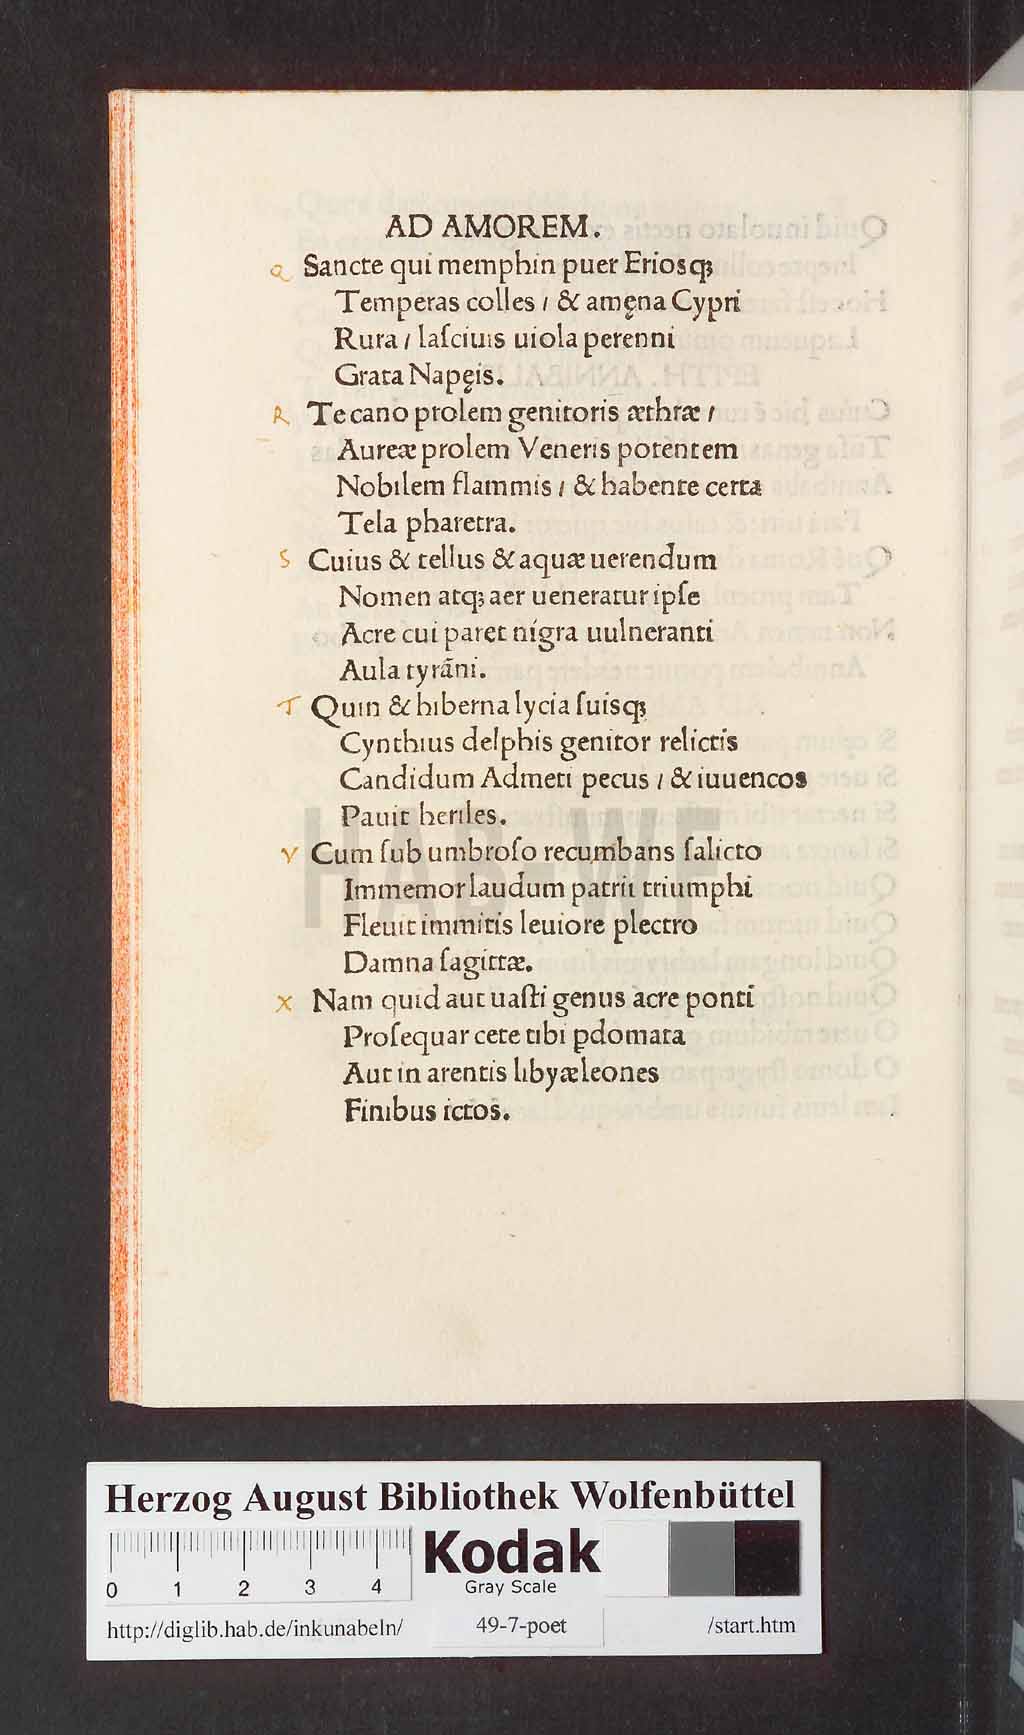 AD AMOREM.
Q Sancte qui memphin puer Eriosq;
Temperas colles / & amęna Cypri
Rura / laſciuis uiola perenni
Grata Napęis.
R Te cano prolem genitoris æthræ /
Aureæ prolem Veneris potentem
Nobilem flammis / & habente certa
Tela pharetra.
S Cuius & tellus & aquæ uerendum
Nomen atq; aer ueneratur ipſe
Acre cui paret nigra uulneranti
Aula tyrāni.
T Quin & hiberna lycia ſuisq;
Cynthius delphis genitor relictis
Candidum Admeti pecus / & iuuencos
Pauit heriles.
V Cum ſub umbroſo recumbans ſalicto
Immemor laudum patrii triumphi
Fleuit immitis leuiore plectro
Damna ſagittæ.
X Nam quid aut uaſti genus àcre ponti
Proſequar cete tibi ꝑdomata
Aut in arentis libyæ leones
Finibus ictos.
HAB-WF
Herzog August Bibliothek Wolfenbüttel
0 1 2 3 4
Kodak
Gray Scale
http://diglib.hab.de/inkunabeln/ 49-7-poet /start.htm